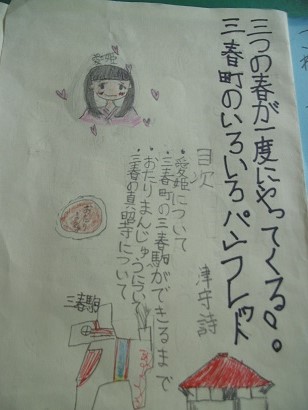 三つの春が一度にやってくる。。
三春町のいろいろパンフレット
愛姫
目次
津守詩
・愛姫について
・三春町の三春駒ができるまで
・おたりまんじゅうについて
・三春の真照寺について
三春駒